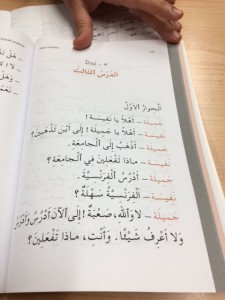 ٣ - ثلاثة
الدَّرْسُ الثّالِثُ
اَلْحِوارُ اَلْأَوَّلُ
جَميلَة – أَهْلاً يا نَفيسَة !
نَفيسَة – أَهْلاً يا جَميلَة ! إلى أَيْنَ تَذْهَبينَ؟
جَميلَة – أَذْهَبُ إلى الْجامِعَةِ.
نَفيسَة – ماذا تَفْعَلينَ في الْجامِعَةِ؟
جَميلَة – أَدْرُسُ الْفَرَنْسِيَّةَ.
نَفيسَة – اَلْفَرَنْسِيَّةُ سَهْلَةٌ؟
جَميلَة – لا وَاللهِ، صَعْبَةٌ ! إلى الْآنَ أَدْرُسُ وَأَدْرُسُ
وَلا أَعْرِفُ شَيْئًا. وَأَنْتِ، ماذا تَفْعَلينَ؟